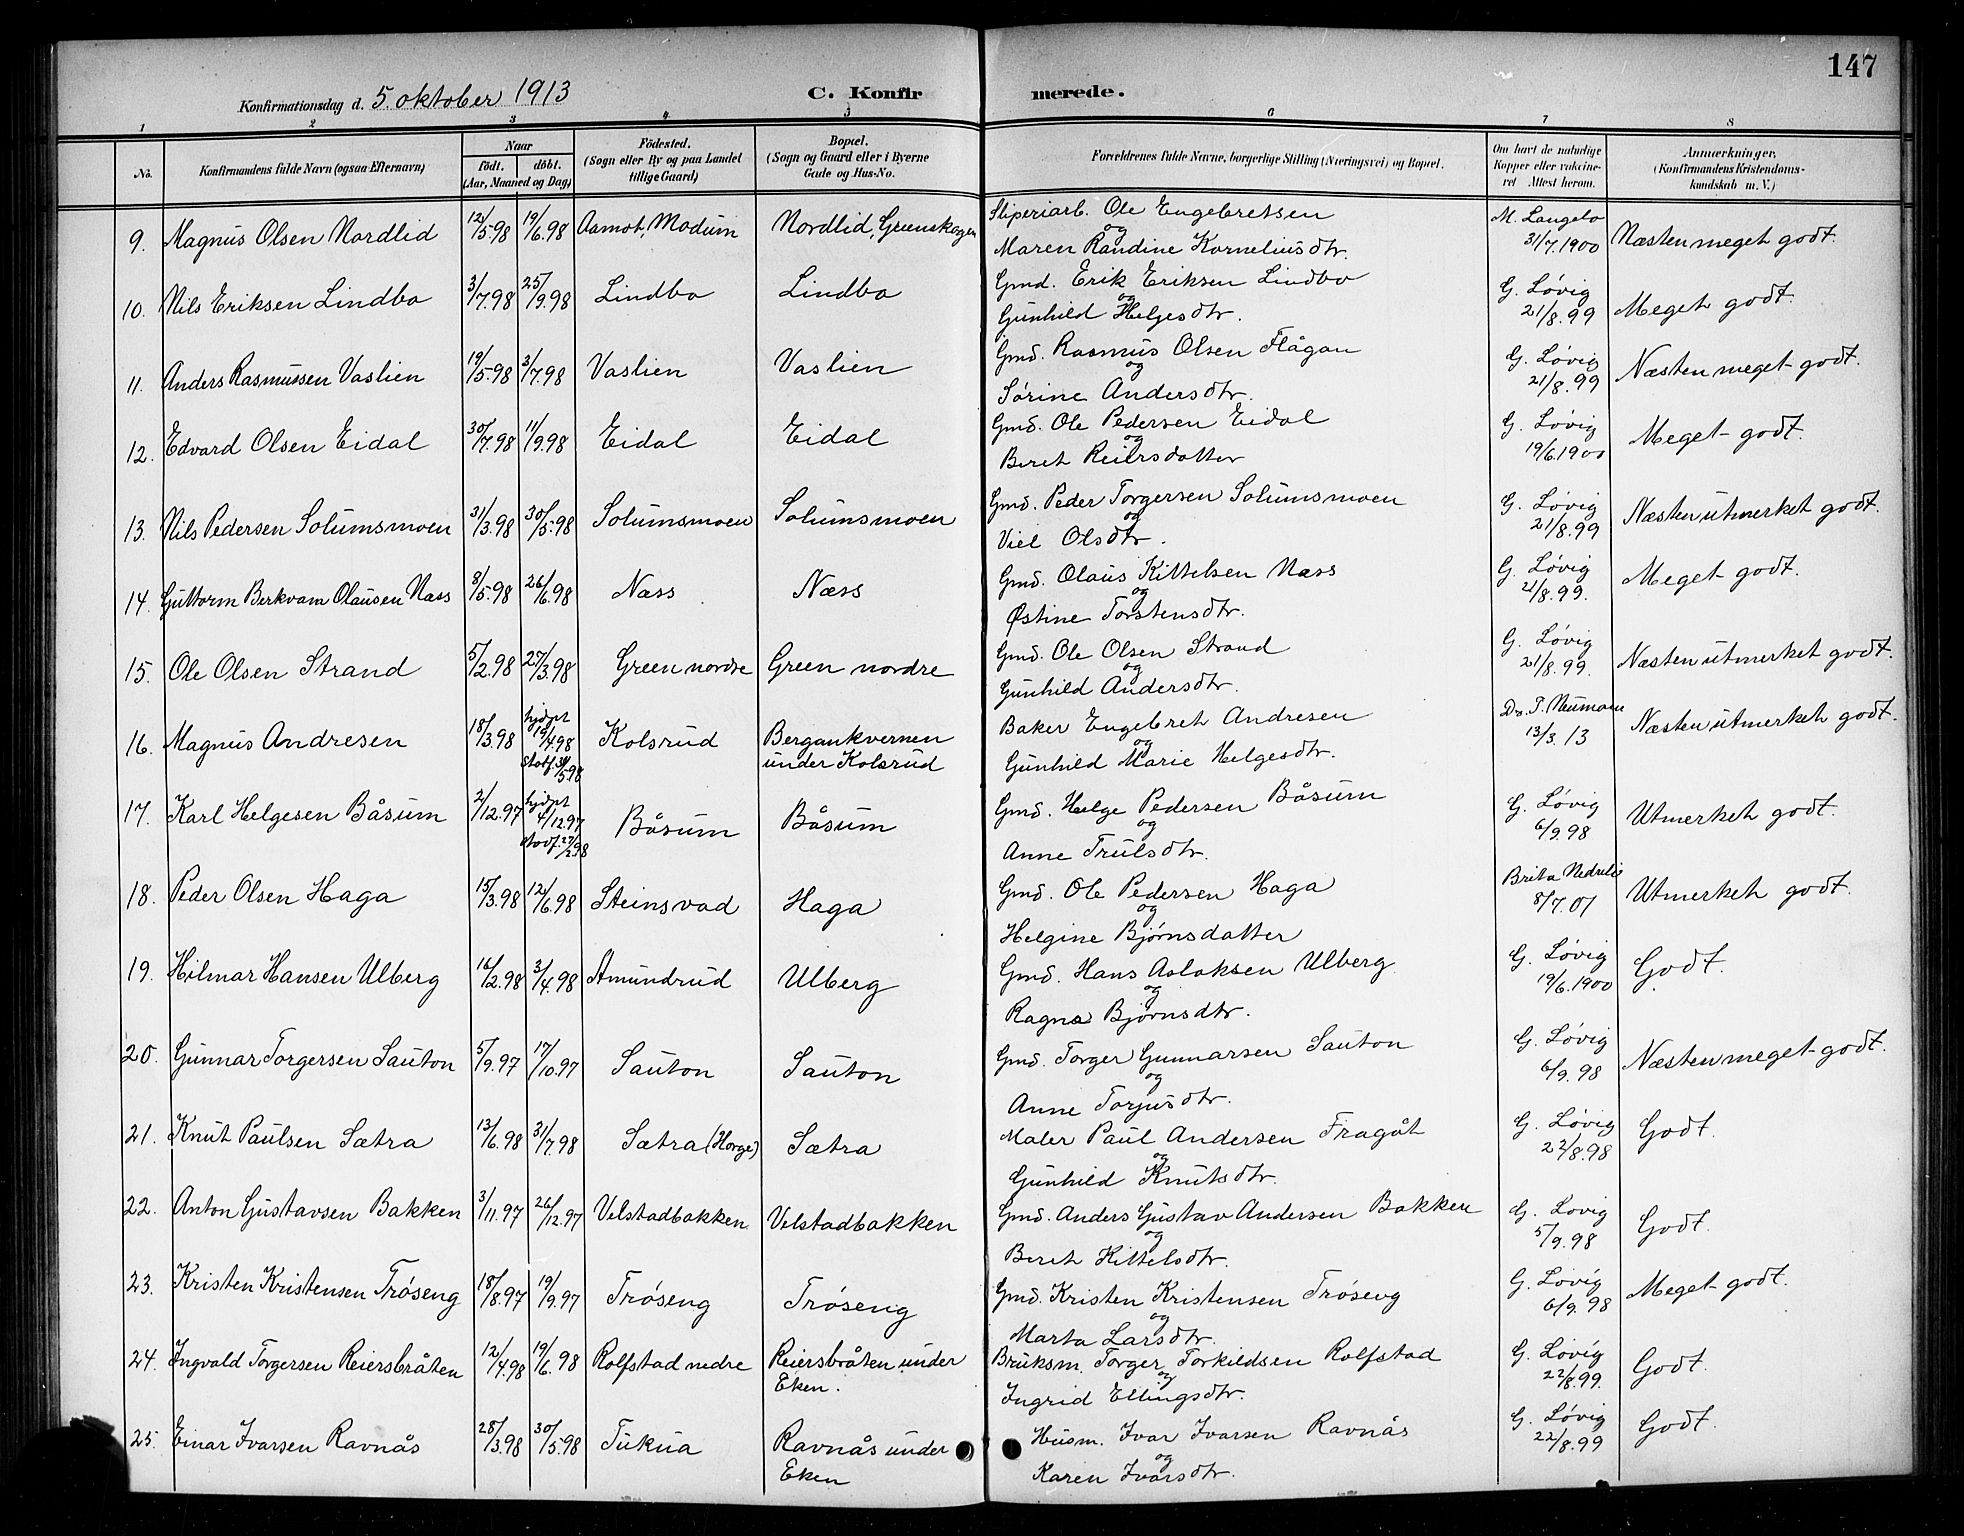 147
Konfirmationsdag d. 5 oktober 1913
C. Konfirmerede.
1 2 3 4 5 6 7 8
No.
Konfirmandens fulde Navn (ogsaa Efternavn)
Naar
födt. döbt.
(Aar, Maaned og Dag)
Födested.
(Sogn eller By og paa Landet
tillige Gaard)
Bopæl.
(Sogn og Gaard eller i Byerne
Gade og Hus-No.
Forældrenes fulde Navne, borgerlige Stilling (Næringsvei) og Bopæl.
Om havt de naturlige
Kopper eller vakcine-
ret Attest herom.
Anmærkninger,
(Konfirmandens Kristendoms-
kundskab m. V.)
9. Magnus Olsen Nordlid 12/5.98 19/6.98 Aamot, Modum Nordlid, Grenskogen Sliperiarb. Ole Engebretsen M. Langebo Næsten meget godt.
og 31/7.1900
Maren Randine Korneliusdtr.
10. Nils Eriksen Lindbo 3/7.98 25/9.98 Lindbo Lindbo Gmd. Erik Eriksen Lindbo G. Løvig Meget godt.
og 21/8.99
Gunhild Helgesdtr.
11. Anders Rasmussen Vaslien 19/5.98 3/7.98 Vaslien Vaslien Gmd. Rasmus Olsen Flågan G. Løvig Næsten meget godt.
og 21/8.99
Sørine Andersdtr.
12. Edvard Olsen Eidal 30/7.98 11/9.98 Eidal Eidal Gmd. Ole Pedersen Eidal G. Løvig Meget godt.
og 19/6.1900
Beret Reiersdatter
13. Nils Pedersen Solumsmoen 31/3.98 30/5.98 Solumsmoen Solumsmoen Gmd. Peder Torgersen Solumsmoen G. Løvig Næsten utmerket godt.
og 21/8.99
Viel Olsdtr.
14. Guttorm Berkvam Olausen Næss 8/5.98 26/6.98 Næss Næss Gmd. Olaus Kittelsen Næss G. Løvig Meget godt.
og 21/8.99.
Østine Torstensdtr.
15. Ole Olsen Strand 5/2.98 27/3.98 Green nordre Green nordre Gmd. Ole Olsen Strand G. Løvig Næsten utmerket godt.
og 21/8.99.
Gunhild Andersdtr.
16. Magnus Andresen 18/3.98 hjdøpt 19/4.98 Kolsrud Bergankvernen Baker Engebret Andresen Dr. T. Neumann Næsten utmerket godt.
stadf. /5.98 under Kolsrud og 13/3.13
Gunhild Marie Helgesdtr.
17. Karl Helgesen Båsum 2/12.97 hjdøpt 4/12.97 Båsum Båsum Gmd. Helge Pedersen Båsum G. Løvig Utmerket godt.
stadf. 27/2.98 og 6/9.98
Anne Trulsdtr.
18. Peder Olsen Haga 15/3.98 12/6.98 Steinsvad Haga Gmd. Ole Pedersen Haga Brita Nedrelie Utmerket godt.
og 8/7.01
Helgine Bjørnsdatter
19. Hilmar Hansen Ulberg 16/2.98 3/4.98 Amundrud Ulberg Gmd. Hans Aslaksen Ulberg G. Løvig Godt.
og 19/6.1900
Ragna Bjørnsdtr.
20. Gunnar Torgersen Sauton 5/9.97 17/10.97 Sauton Sauton Gmd. Torger Gunnarsen Sauton G. Løvig Næsten meget godt.
og 6/9.98
Anne Torjusdtr.
21. Knut Paulsen Sætra 13/6.98 31/7.98 Sætra (Horge) Sætra Maler Paul Andersen Fragåt G. Løvig Godt.
og 22/8.98
Gunhild Knutsdtr.
22. Anton Gustavsen Bakken 3/11.97 26/12.97 Velstadbakken Velstadbakken Gmd. Anders Gustav Andersen Bakken G. Løvig Godt.
og 5/9.98
Beret Kittelsdtr.
23. Kristen Kristensen Trøseng 18/8.97 19/9.97 Trøseng Trøseng Gmd. Kristen Kristensen Trøseng G. Løvig Meget godt.
og 6/9.98
Marta Larsdtr.
24. Ingvald Torgersen Reiersbråten 12/4.98 19/6.98 Rolfstad nedre Reiersbråten under Bruksm. Torger Torkildsen Rolfstad G. Løvig Godt.
Eken. og 22/8.99.
Ingrid Ellingsdtr.
25. Einar Ivarsen Ravnås 28/3.98 30/5.98 Tukua Ravnås under Husm. Ivar Ivarsen Ravnås G. Løvig Godt.
Eken og 22/8.99
Karen Ivarsdtr.